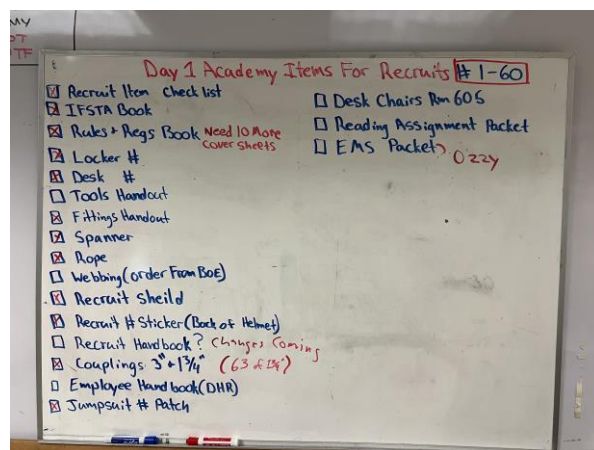 MY
Day 1 Academy Items For Recruits # 1-60
Recruit Item Check list
IFSTA Book
Rules + Regs Book Need 10 More
Cover Sheets
Locker #
Desk #
Tools Handout
Fittings Handout
Spanner
Rope
Webbing (order From BoE)
Recruit Sheild
Recruit # Sticker (Back of Helmet)
Recruit Handbook? Changes Coming
Couplings 3" + 1 3/4" (63 of 1 3/4")
Employee Handbook (DHR)
Jumpsuit # Patch
Desk Chairs Rm 605
Reading Assignment Packet
EMS Packet
Ozzy